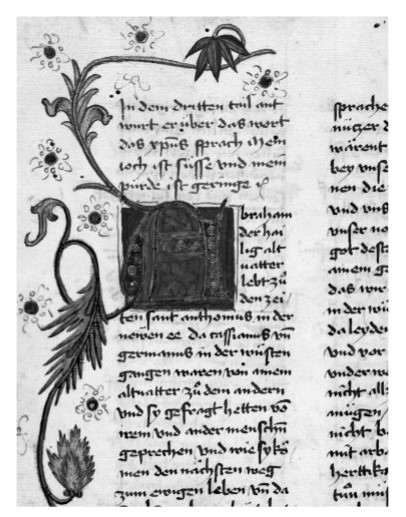 In dem dritten tail ant
wurt er über das wort
das xpūs sprach Mein
ioch ist süsse vnd mein
pürde ist geringe
Abraham
der hai
lig alt
vatter
lebt zů
den zei
ten sant anthonius in der
neẅen ee da cassianus vn̄
germanus in der wüsten
gangen waren von ainem
altuatter zů dem andern
vnd sy gefragt hetten vō
irem vnd ander menschn̄
geprechen vnd wie sy
men den nächsten weg
zum ewigen leben vn̄ da
sprache
nüczer
wärent
bey vnse
nen die
vnd vns
vnser no
got
ainem g
das wir
in der wü
da leyden
vnd vor
vnder w
nicht all
mügen
nicht b
mit arb
tůn müs